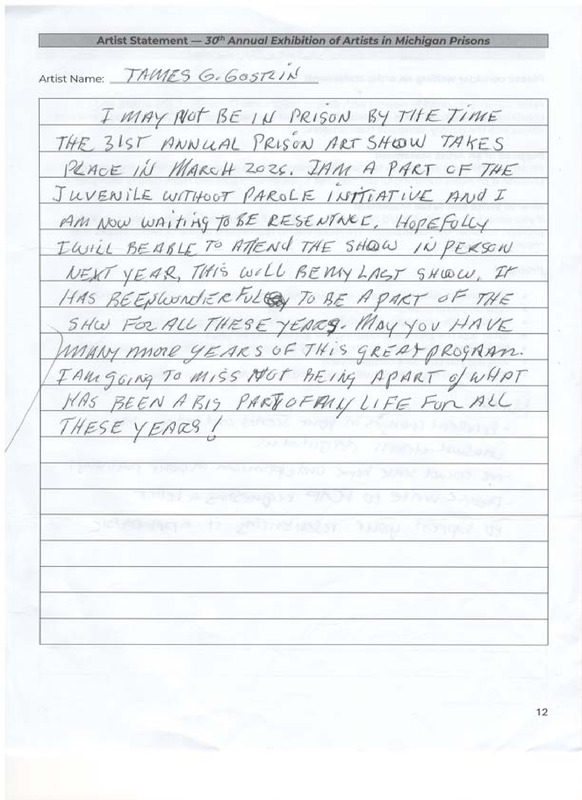 Artist Statement — 30th Annual Exhibition of Artists in Michigan Prisons
Artist Name: JAMES G. GOSTLIN
I MAY NOT BE IN PRISON BY THE TIME
THE 31ST ANNUAL PRISON ART SHOW TAKES
PLACE IN MARCH 2026. I AM A PART OF THE
JUVENILE WITHOUT PAROLE INITIATIVE AND I
AM NOW WAITING TO BE RESENTNCE. HOPEFULLY
I WILL BE ABLE TO ATTEND THE SHOW IN PERSON
NEXT YEAR. THIS WILL BE MY LAST SHOW. IT
HAS BEEN WONDERFUL TO BE A PART OF THE
SHW FOR ALL THESE YEARS. MAY YOU HAVE
MANY MORE YEARS OF THIS GREAT PROGRAM.
I AM GOING TO MISS NOT BEING A PART OF WHAT
HAS BEEN A BIG PART OF MY LIFE FOR ALL
THESE YEARS!
12